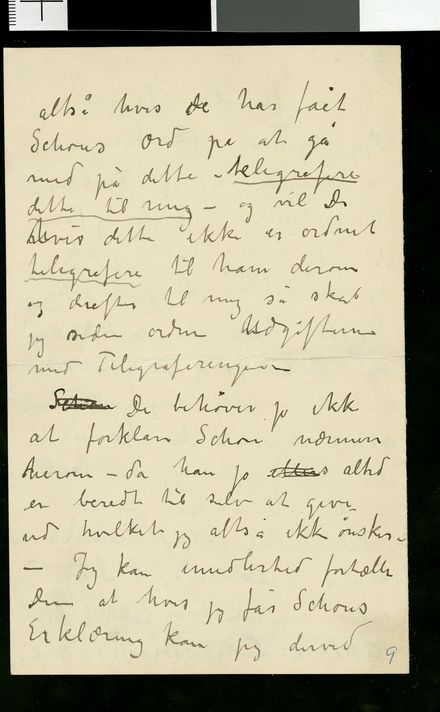 altså hvis De har fået
Schous Ord på at gå
med på dette – telegrafere
dette til mig – og vil De
hvis dette ikke er ordnet
telegrafere til ham derom
og derefter til mig så skal
jeg siden ordne Udgifterne
med Telegraferingen –
Schou De behøver jo ikke
at forklare Schou nærmere
herom – da han jo altid
er beredt til selv at give
ud hvilket jeg altså ikke ønsker –
– Jeg kan imidlertid fortælle
Dem at hvis jeg får Schous
Erklæring kan jeg derved
9